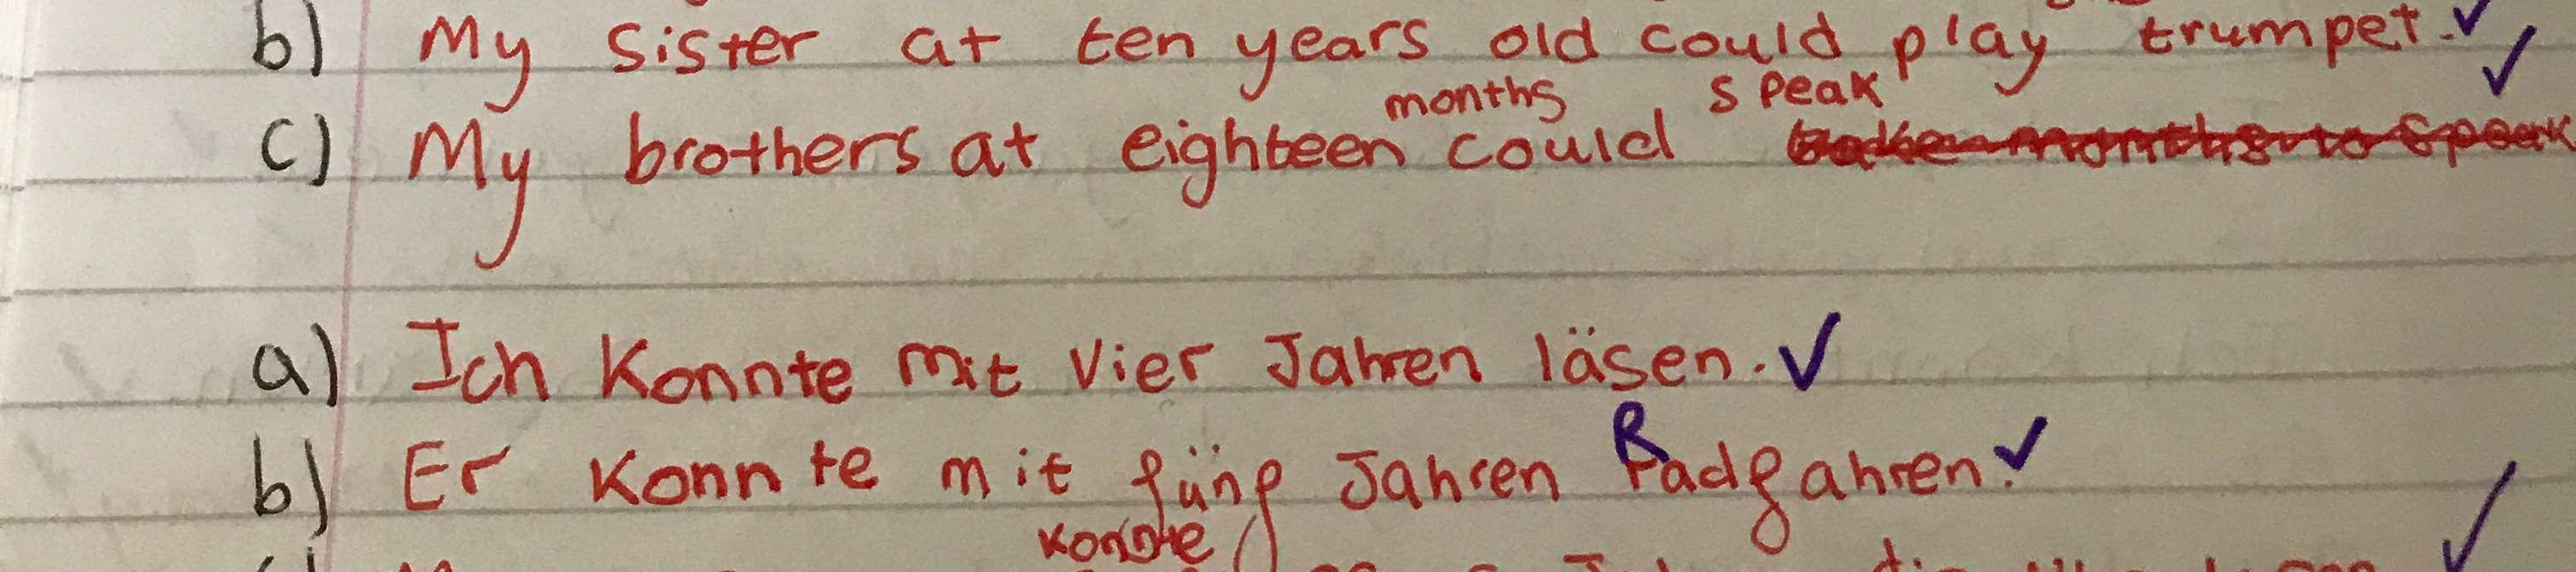 b) My sister at ten years old could play trumpet.
months speak
c) My brothers at eighteen could
a) Ich Konnte mit Vier Jahren läsen.
b) Er Konnte mit fünf Jahren Radfahren.
Konnte